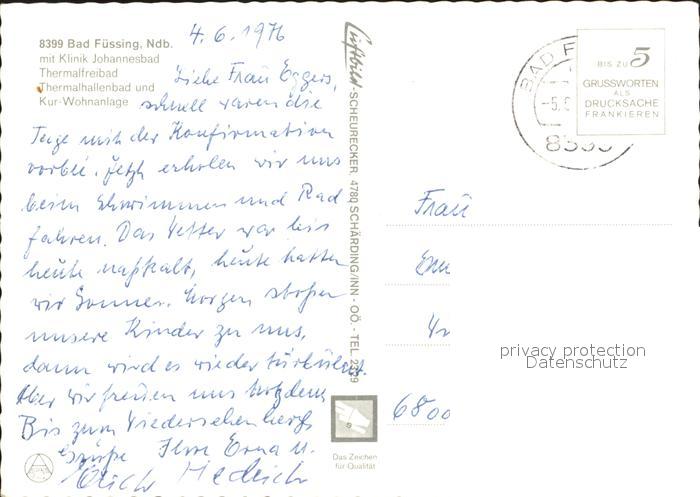 8399 Bad Füssing, Ndb.
mit Klinik Johannesbad
Thermalfreibad
Thermalhallenbad und
Kur-Wohnanlage
4.6.1976
Liebe Frau Eggers,
schnell waren die
Tage mit der Konfirmation
vorbei. Jetzt erholen wir uns
beim Schwimmen und Rad
fahren. Das Wetter war bis
heute naßkalt, heute hatten
wir Sonne. Morgen stoßen
unsere Kinder zu uns,
dann wird es wieder turbulent.
Aber wir freuen uns trotzdem
Bis zum Wiedersehen herzl.
Grüße Ihre Erna u.
Erich Hedrich
Luftbild-SCHEURECKER, 4780 SCHÄRDING/INN - OÖ. - TEL. 2239
Das Zeichen
für Qualität
BAD F
-5.6
8399
BIS ZU 5
GRUSSWORTEN
ALS
DRUCKSACHE
FRANKIEREN
Frau
6800
privacy protection
Datenschutz